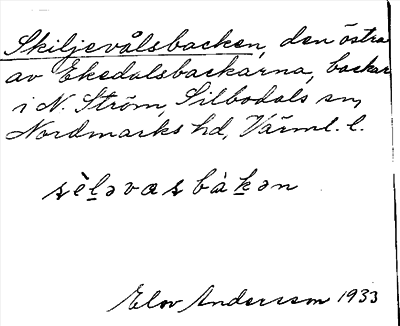 Skiljevålsbacken, den östra
av Ekedalsbackarna, backar
i N. Ström, Silbodals sn,
Nordmarks hd, Värml. l.
sèḻəvas bàḵən
Elov Andersson 1933